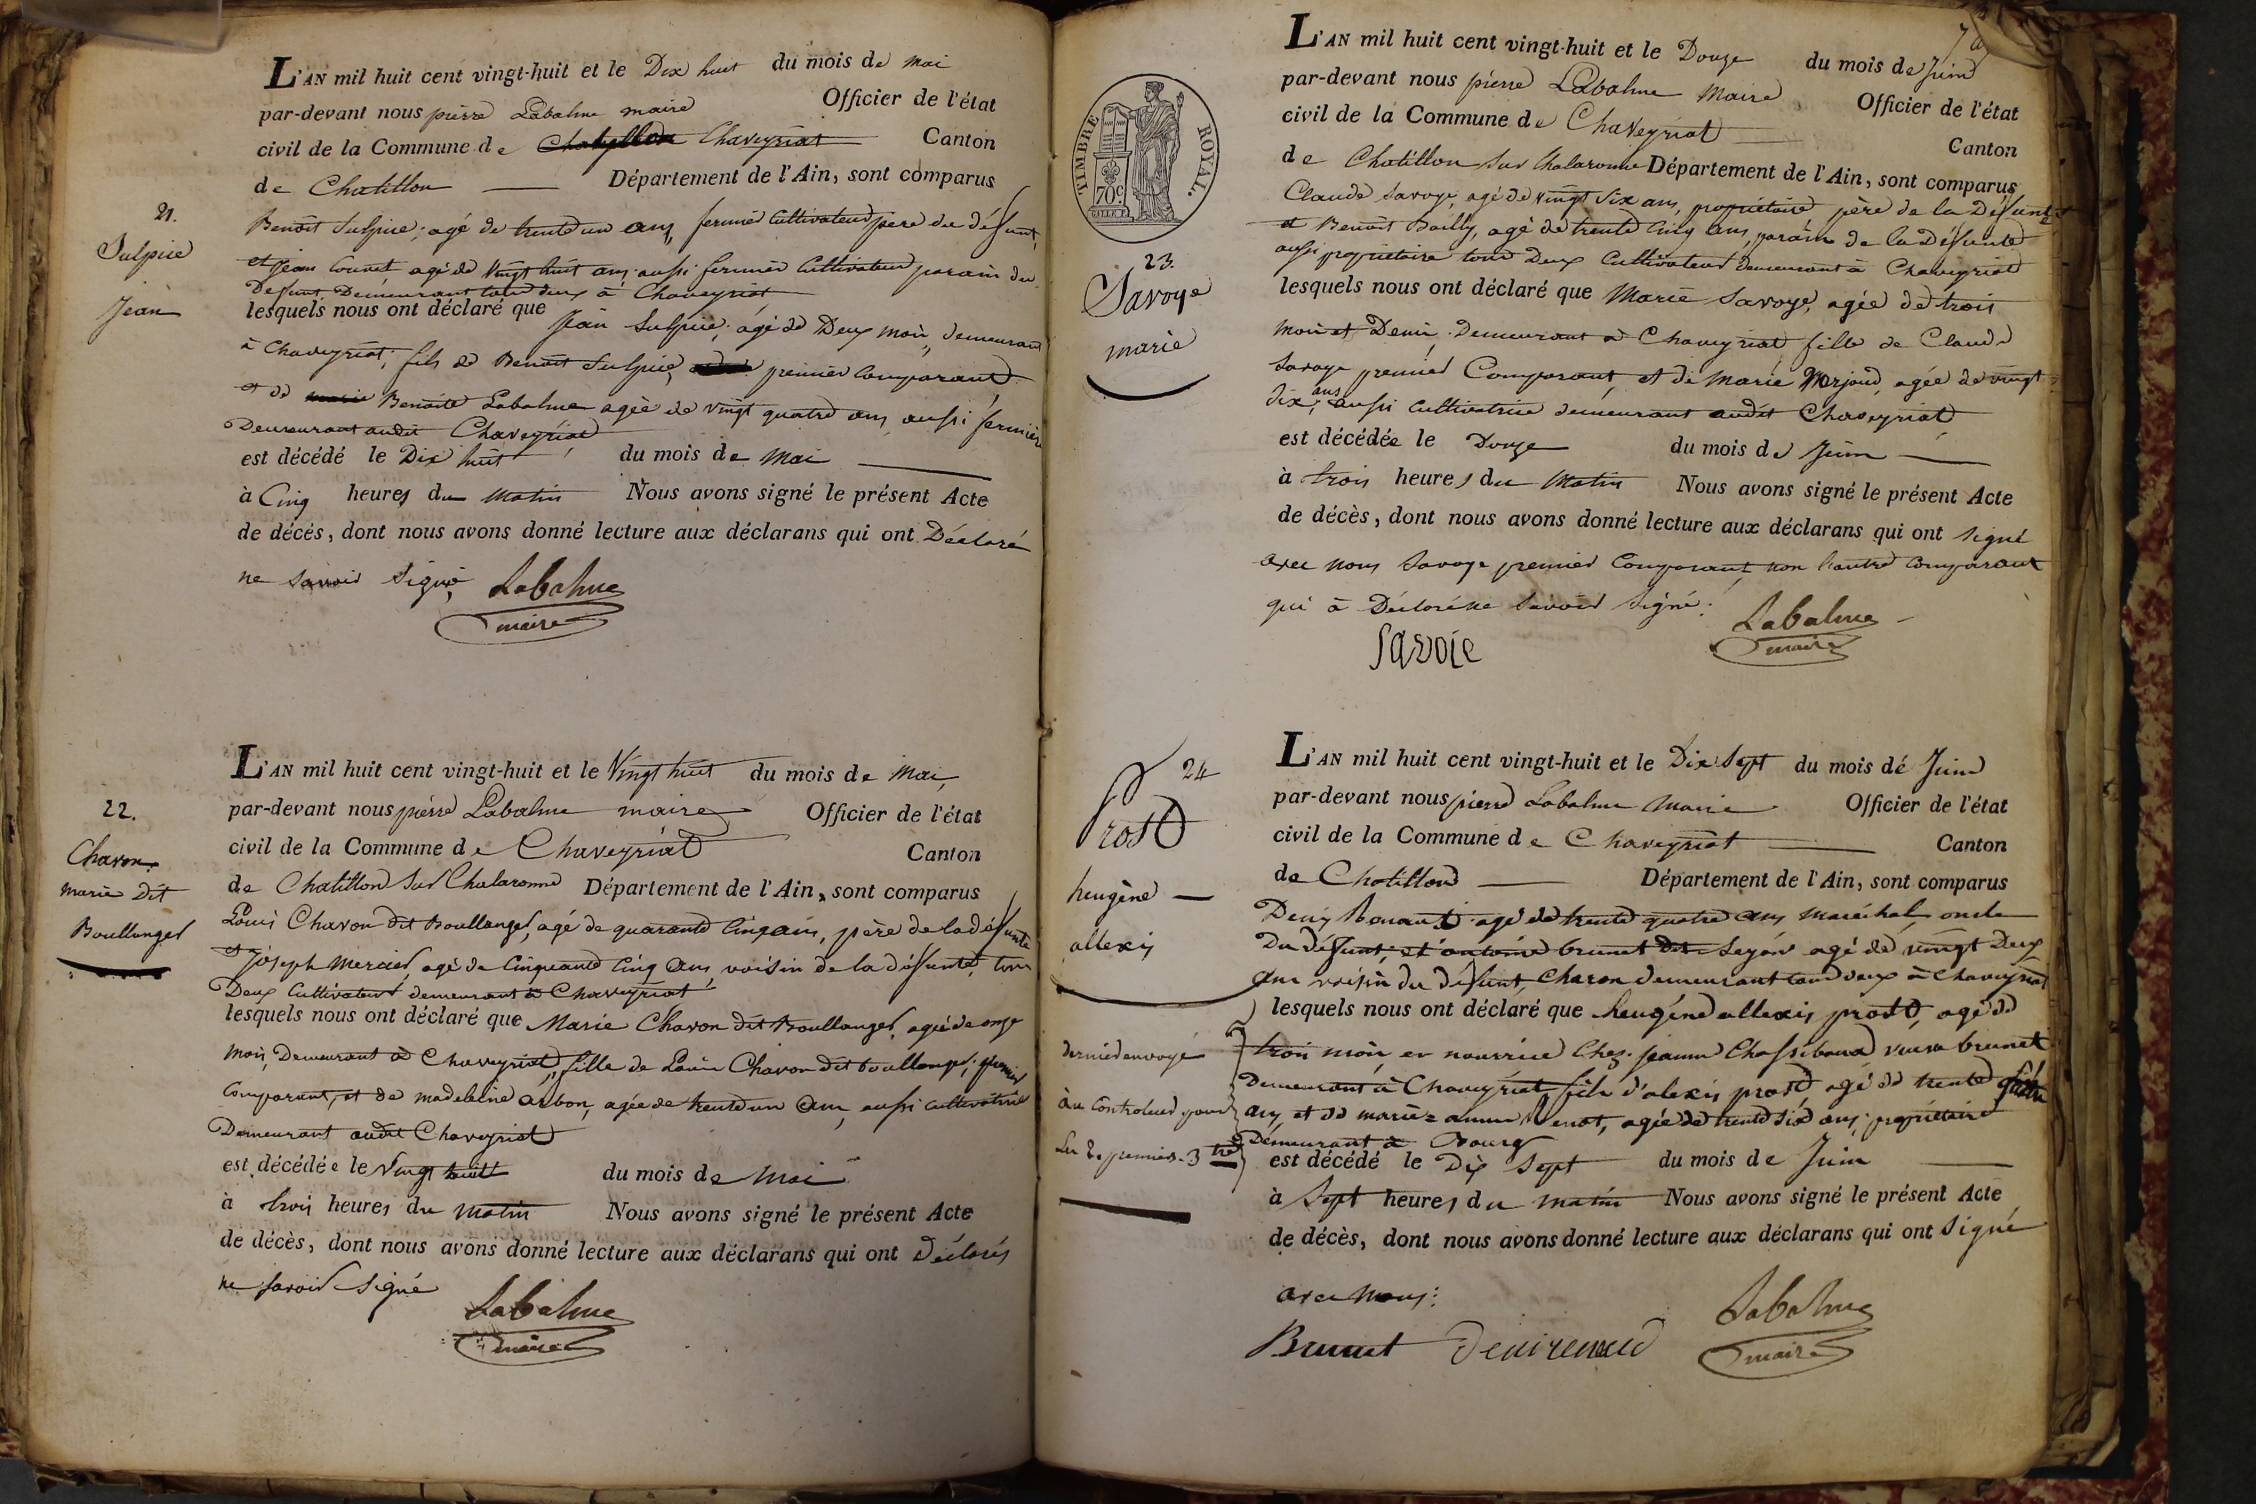 L'AN mil huit cent vingt-huit et le Dix huit du mois de mai
par-devant nous pierre Labalme maire Officier de l'état
civil de la Commune de Chaveyriat Canton
de Chatillon Département de l'Ain, sont comparus
21.
Sulpice
Jean
Benoit Sulpice, agé de trente un ans, fermier Cultivateur père du défunt,
et Jean Counet agé de vingt huit ans aussi fermier Cultivateur parain du
Defunt Demeurant tout deux à Chaveyriat
lesquels nous ont déclaré que
Jean Sulpice, agé de Deux mois, demeurant
à Chaveyriat, fils de Benoit Sulpice, premier Comparant
et de Benoite Labalme agée de vingt quatre ans, aussi fermière
Demeurant audit Chaveyriat
est décédé le Dix huit du mois de Mai
à Cinq heures du Matin Nous avons signé le présent Acte
de décés, dont nous avons donné lecture aux déclarans qui ont Déclaré
ne savoir signé, Labalme
maire
L'AN mil huit cent vingt-huit et le Vingt huit du mois de Mai,
par-devant nous pierre Labalme maire Officier de l'état
civil de la Commune de Chaveyriat Canton
de Chatillon sur Chalaronne Département de l'Ain, sont comparus
22.
Chavon
marie Dit
Boullanger
Louis Chavon dit Boullanger, agé de quarante Cinq ans, père de la défunte
et Joseph Mercier, agé de Cinquante Cinq Ans, voisin de la défunte, tous
Deux Cultivateurs demeurant à Chaveyriat
lesquels nous ont déclaré que Marie Chavon dit Boullanger, agée de onze
Mois, Demeurant à Chaveyriat, fille de Louis Chavon dit boullanger, premier
Comparant, et de madeleine arbon, agée de trente un Ans, aussi cultivatrice
Demeurant audit Chaveyriat
est décédée le vingt huit du mois de Mai
à trois heures du matin Nous avons signé le présent Acte
de décès, dont nous avons donné lecture aux déclarans qui ont Déclarés
ne savoir signé
Labalme
maire
L'AN mil huit cent vingt-huit et le Douze du mois de Juin
par-devant nous pierre Labalme Maire Officier de l'état
civil de la Commune de Chaveyriat
Canton
de Chatillon sur Chalaronne Département de l'Ain, sont comparus
TIMBRE ROYAL.
70c.
23.
Savoye
marie
Claude Savoye, agé de vingt six ans, propriétaire père de la Défunte
et Benoit Bailly, agé de trente Cinq ans, parain de la Défunte
aussi propriétaire tout Deux Cultivateur demeurant à Chaveyriat
lesquels nous ont déclaré que Marie Savoye, agée de trois
Mois et Demi. Demeurant à Chaveyriat fille de Claude
Savoye premier Comparant, et de Marie Morjoud, agée de vingt
dix ans, aussi cultivatrice demeurant audit Chaveyriat
est décédée le Douze du mois de Juin
à trois heures du Matin Nous avons signé le présent Acte
de décès, dont nous avons donné lecture aux déclarans qui ont signé
avec nous Savoye premier Comparant, non l'autre Comparant
qui à Déclaré ne savoir signé.
Savoie
Labalme
maire
L'AN mil huit cent vingt-huit et le Dix Sept du mois dé Juin
par-devant nous pierre Labalme Maire Officier de l'état
civil de la Commune de Chaveyriat Canton
de Chatillon Département de l'Ain, sont comparus
24
Prost
heugène
allexis
Denis Renaud agé de trente quatre ans Maréchal, oncle
Du Défunt, et antoine brunet dit agé de vingt Deux
ans voisin du défunt, Charon demeurant tout deux à Chaveyriat
lesquels nous ont déclaré que heugène allexis prost, agé de
trois mois en nourrice Chez jeanne Chassibout veuve brunet
Demeurant à Chaveyriat, fils d'alexis prost, agé de trente
ans, et de marie anne Venot, agée de trente six ans, propriétaire
Démeurant à Bourg
est décédé le Dix Sept du mois de Juin
à Sept heures du matin Nous avons signé le présent Acte
de décès, dont nous avons donné lecture aux déclarans qui ont Signé
avec Nous:
dernier envoyé
au Controleur pour
Les 2. premiers 3tre
Brunet Denirenaud Labalme
maire